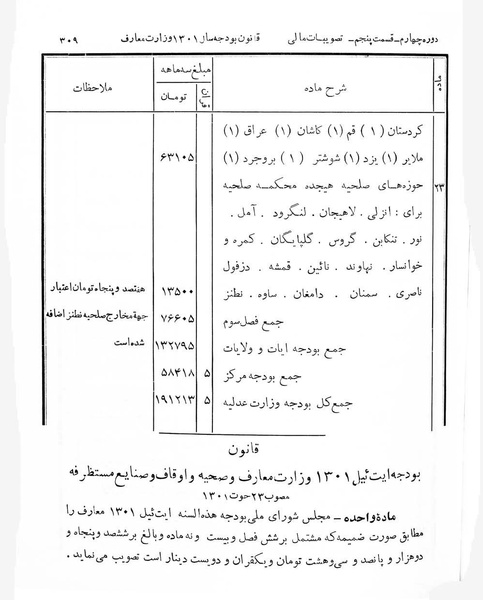 دوره چهارم – قسمت پنجم – تصویبات مالی قانون بودجه سال ۱۳۰۱ وزارت معارف ۳۰۹
ماده شرح ماده مبلغ سه ماهه ملاحظات
قران تومان
کردستان (۱) قم (۱) کاشان (۱) عراق (۱)
ملایر (۱) یزد (۱) شوشتر (۱) بروجرد (۱) ۶۳۱۰۵
۲۳ حوزه‌های صلحیه هیجده محکمه صلحیه
برای : انزلی . لاهیجان . لنگرود . آمل .
نور . تنکابن . گروس . گلپایگان . کمره و
خوانسار . نهاوند . نائین . قمشه . دزفول
ناصری . سمنان . دامغان . ساوه . نطنز ۱۳۵۰۰ هفتصد و پنجاه تومان اعتبار
جمع فصل سوم ۷۶۶۰۵ جهة مخارج صلحیه نطنز اضافه
جمع بودجه ایات و ولایات ۱۳۲۷۹۵ شده است
جمع بودجه مرکز ۵ ۵۸۴۱۸
جمع کل بودجه وزارت عدلیه ۵ ۱۹۱۲۱۳
قانون
بودجه ایت ئیل ۱۳۰۱ وزارت معارف و صحیه و اوقاف و صنایع مستظرفه
مصوب ۲۳ حوت ۱۳۰۱
ماده واحده – مجلس شورای ملی بودجه هذه السنه ایت ئیل ۱۳۰۱ معارف را
مطابق صورت ضمیمه که مشتمل برشش فصل و بیست و نه ماده و بالغ برششصد و پنجاه و
دوهزار و پانصد و سی و هشت تومان و یکقران و دویست دینار است تصویب می نماید .